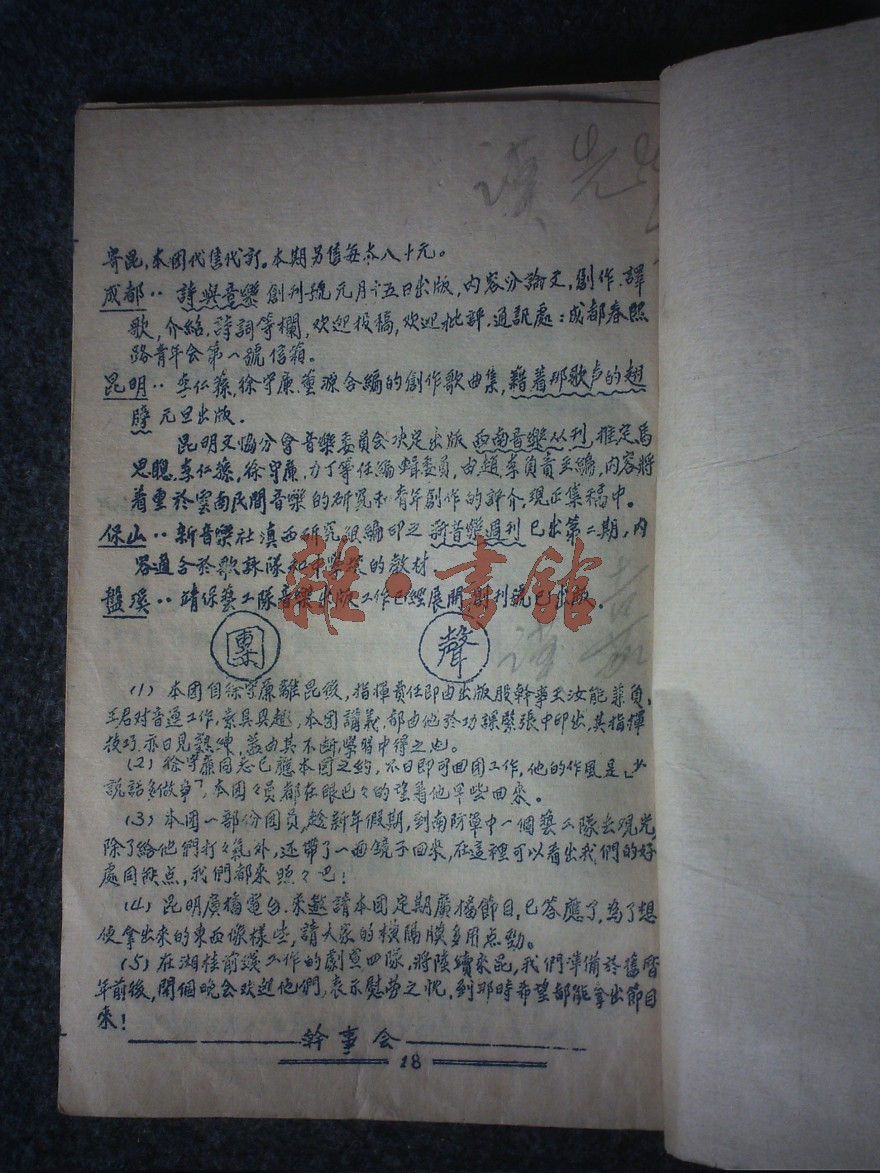 寄昆,本团代售代訂。本期另售每本八十元。
成都‥詩與音樂創刊號元月十五日出版,内容分論文,創作,譯
歌,介紹,詩詞等欄,欢迎投稿,欢迎批評.通訊處:成都春熙
路青年会第一號信箱。
昆明‥李仁蓀,徐守廉,董源合編的創作歌曲集,藉着那歌声的翅
膀元旦出版.
昆明文協分會音樂委員会决定出版西南音樂丛刊,推定馬
思聰,李仁蓀,徐守廉,力丁等任編輯委員,由趙,李負責主編,内容將
着重於雲南民間音樂的研究和青年創作的評介,現正集稿中。
保山‥新音樂社滇西研究組編印之新音樂週刊已出第二期,内
容適合於歌詠隊和中學校的教材
盤溪‥靖保藝工隊音樂出版工作已經展開創刊號已出版.
團 聲
(1) 本团自徐守廉離昆後,指揮責任即由出版股幹事王汝能兼負,
王君对音運工作,素具興趣,本团講義,都由他於功課緊張中印出,其指揮
技巧,亦日見熟練,益由其不断學習中得之也。
(2) 徐守廉同志已應本团之約,不日即可回团工作,他的作風是「少
説話多做事」,本团々員都在眼巴々的望着他早些回來。
(3) 本团一部份团員,趁新年假期,到南防軍中一個藝工隊去观光,
除了給他們打々氣外,还帶了一面鏡子回來,在這裡可以看出我們的好
處同缺点,我們都來照々吧!
(4) 昆明廣播電台.來邀請本团定期廣播節目,已答應了,為了想
使拿出來的東西像樣些,請大家的横隔膜多用点勁。
(5) 在湘桂前綫工作的劇宣四隊,將陸續來昆,我們準備於舊曆
年前後,開個晚会欢迎他們,表示慰劳之忱,到那時希望都能拿出節目
來!
幹事会
18
雜·書館